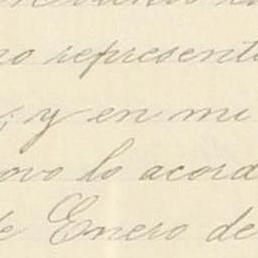 no represent
; y en mi
ovo lo acord
de Enero de